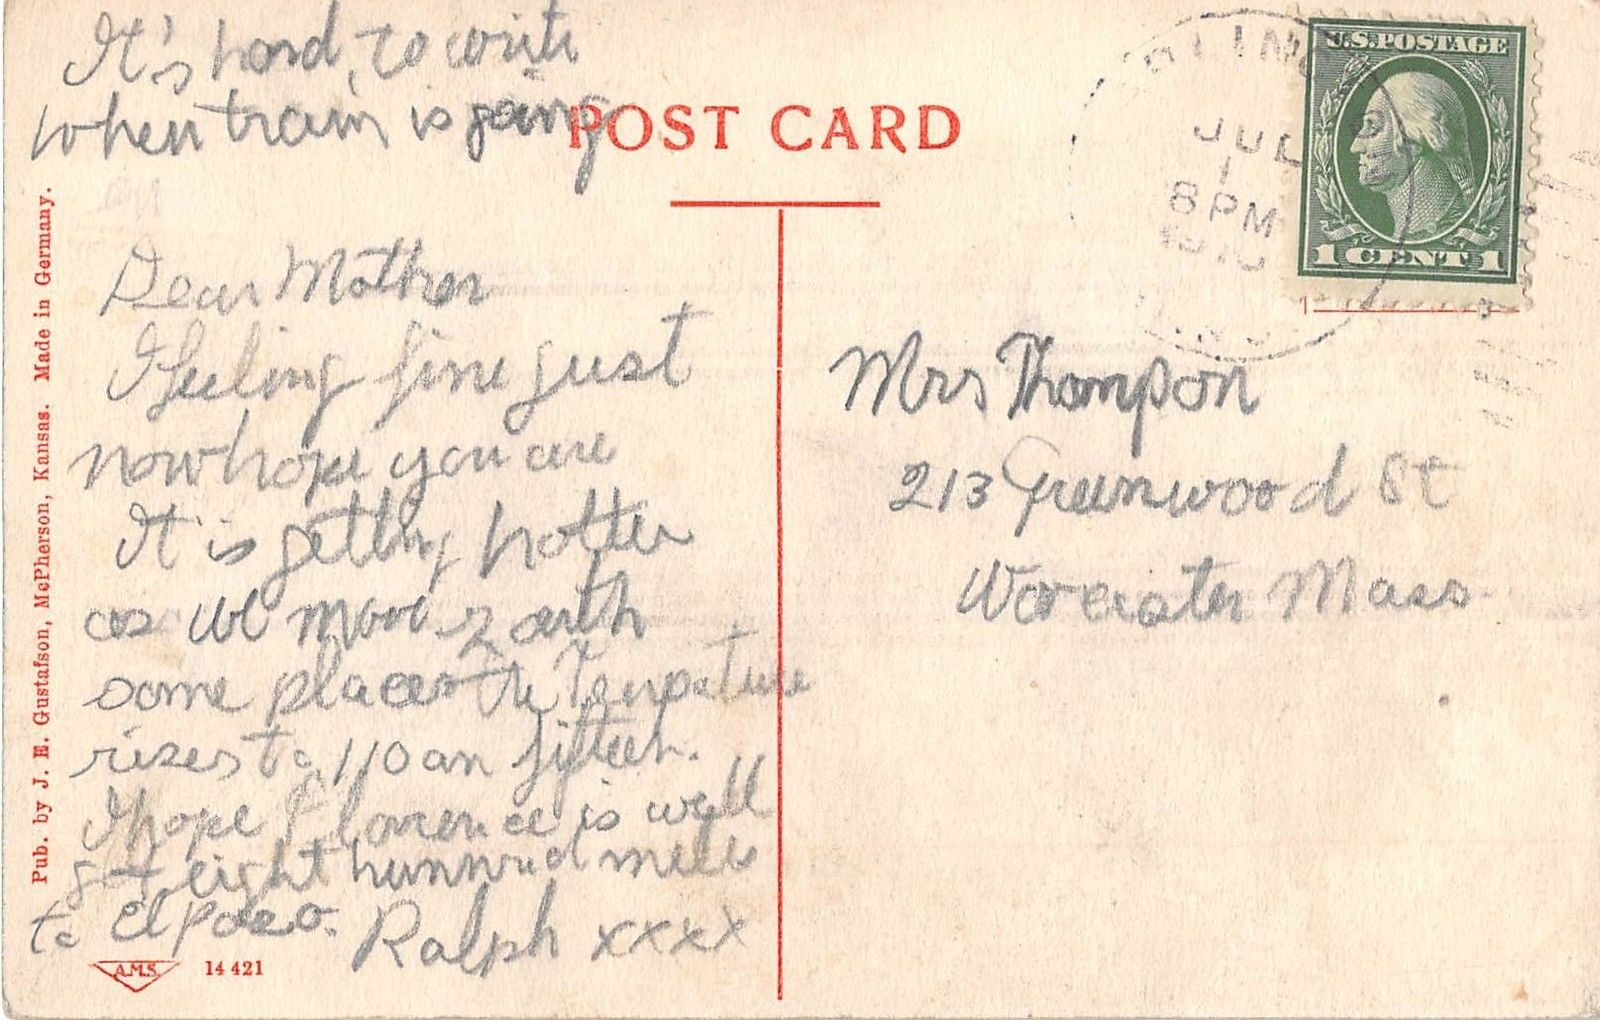 It's hard, to write
when train is going
POST CARD
U.S. POSTAGE
1 CENT 1
JUL
1
8 PM
Dear Mother
I feeling fine just
now hope you are
It is getting hotter
as we move
some places the
rizes to 110 an fifteen.
I hope Florence is well
got eight hunnred miles
to El paso. Ralph xxxx
Mrs Thompson
213 Greenwood St
Worcester Mass
Pub. by J. E. Gustafson, McPherson, Kansas. Made in Germany.
A.M.S. 14421